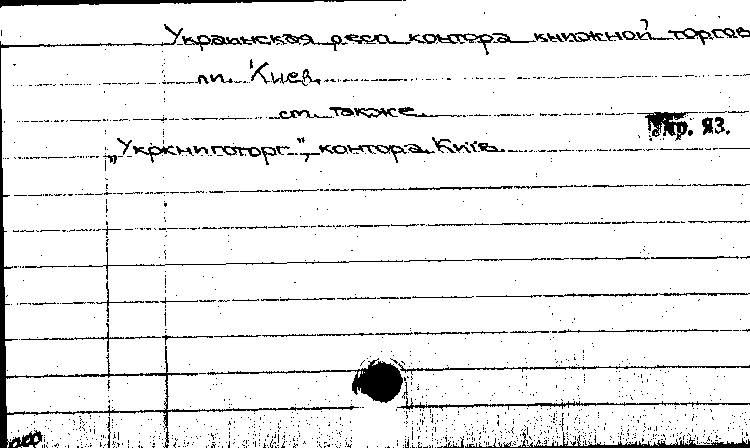 Украинская респ контора книжной торгов
Киев.
см. также
Укр. ЯЗ.
„Укркниготорг", контора. Київ.